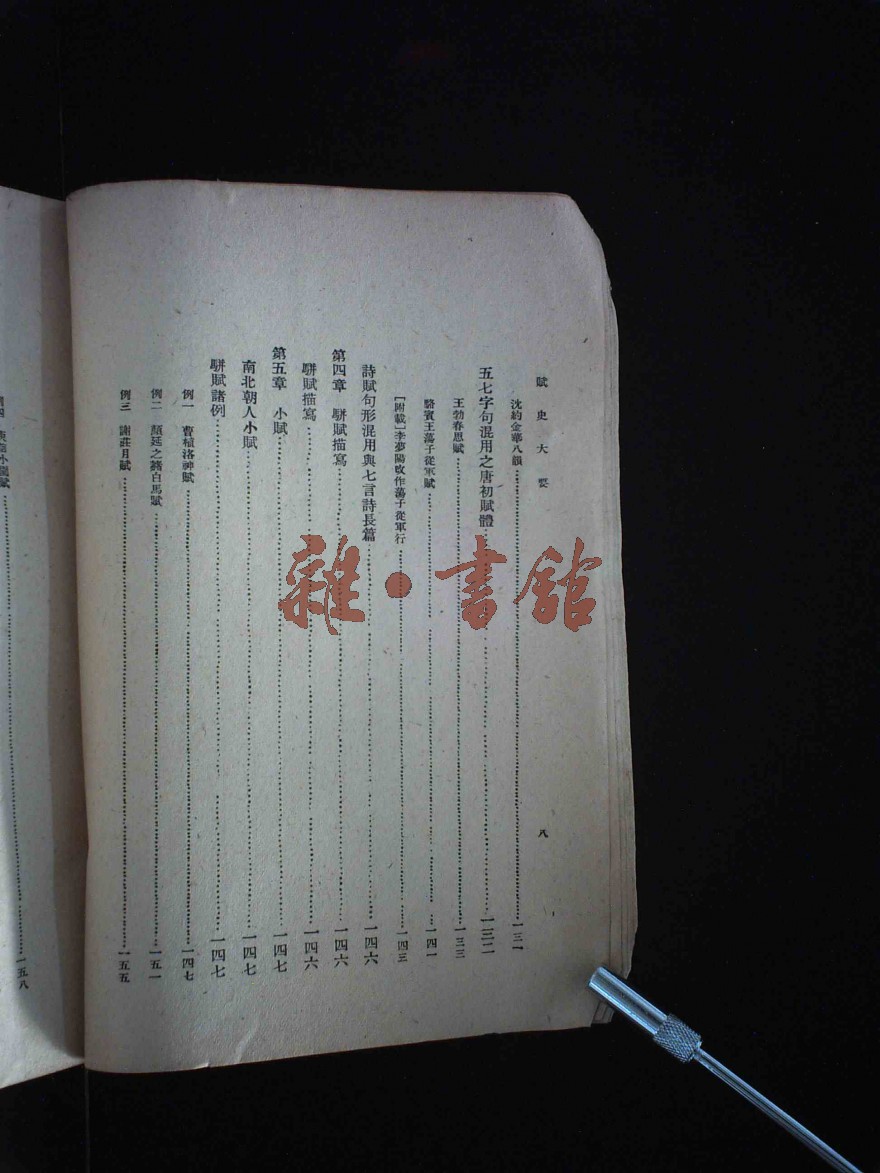 賦史大要
八
沈約金華八韻……一三一
五七字句混用之唐初賦體……一三二
王勃春思賦……一三三
駱賓王蕩子從軍賦……一四一
［附載］李夢陽改作蕩子從軍行……一四三
詩賦句形混用與七言詩長篇……一四六
第四章　駢賦描寫……一四六
駢賦描寫……一四六
第五章　小賦……一四七
南北朝人小賦……一四七
駢賦諸例……一四七
例一　曹植洛神賦……一四七
例二　顏延之赭白馬賦……一五一
例三　謝莊月賦……一五五
一五八
雜·書館